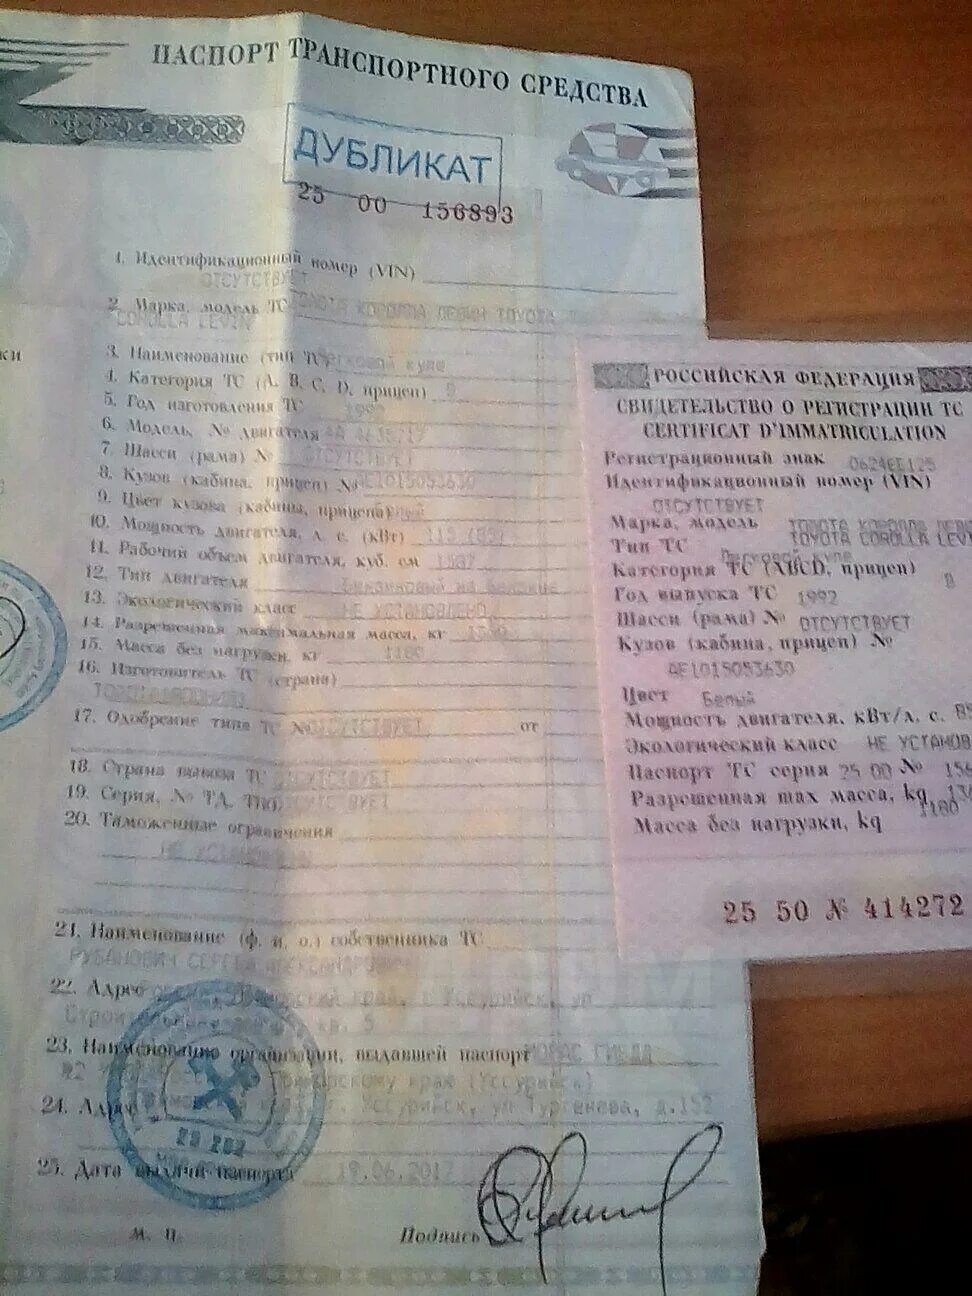 ПАСПОРТ ТРАНСПОРТНОГО СРЕДСТВА
ДУБЛИКАТ
25 00 156893
1. Идентификационный номер (VIN)
ОТСУТСТВУЕТ
2. Марка, модель ТС ТОЙОТА КОРОЛЛА ЛЕВИН TOYOTA
COROLLA LEVIN
3. Наименование (тип ТС) Легковой купе
4. Категория ТС (A, B, C, D, прицеп) B
5. Год изготовления ТС 1992
6. Модель, № двигателя
7. Шасси (рама) № ОТСУТСТВУЕТ
8. Кузов (кабина, прицеп) № AE1015053630
9. Цвет кузова (кабины, прицепа)
10. Мощность двигателя, л. с. (кВт) 115 (85)
11. Рабочий объем двигателя, куб. см 1587
12. Тип двигателя Бензиновый на бензине
13. Экологический класс НЕ УСТАНОВЛЕНО
14. Разрешенная максимальная масса, кг
15. Масса без нагрузки, кг 1180
16. Изготовитель ТС (страна)
17. Одобрение типа ТС № ОТСУТСТВУЕТ от
18. Страна вывоза ТС ОТСУТСТВУЕТ
19. Серия, № ТД, ТПО ОТСУТСТВУЕТ
20. Таможенные ограничения
НЕ УСТАНОВЛЕНЫ
21. Наименование (ф. и. о.) собственника ТС
РУБАНОВИЧ СЕРГЕЙ АЛЕКСАНДРОВИЧ
22. Адрес край, г. Уссурийск, ул
кв. 5
23. Наименование организации, выдавшей паспорт МОРАС ГИБДД
Приморскому краю (Уссурийск)
24. Адрес г. Уссурийск, ул Тургенева, д.152
25. Дата выдачи паспорта 19.06.2017
М. П. Подпись
РОССИЙСКАЯ ФЕДЕРАЦИЯ
СВИДЕТЕЛЬСТВО О РЕГИСТРАЦИИ ТС
CERTIFICAT D'IMMATRICULATION
Регистрационный знак О624ЕЕ125
Идентификационный номер (VIN)
ОТСУТСТВУЕТ
Марка, модель ТОЙОТА КОРОЛЛА ЛЕВИ
TOYOTA COROLLA LEVI
Тип ТС Легковой купе
Категория ТС (ABCD, прицеп) B
Год выпуска ТС 1992
Шасси (рама) № ОТСУТСТВУЕТ
Кузов (кабина, прицеп) №
AE1015053630
Цвет Белый
Мощность двигателя, кВт/л. с. 85
Экологический класс НЕ УСТАНОВ
Паспорт ТС серия 25 00 № 156
Разрешенная max масса, kg
Масса без нагрузки, kg 1180
25 50 № 414272